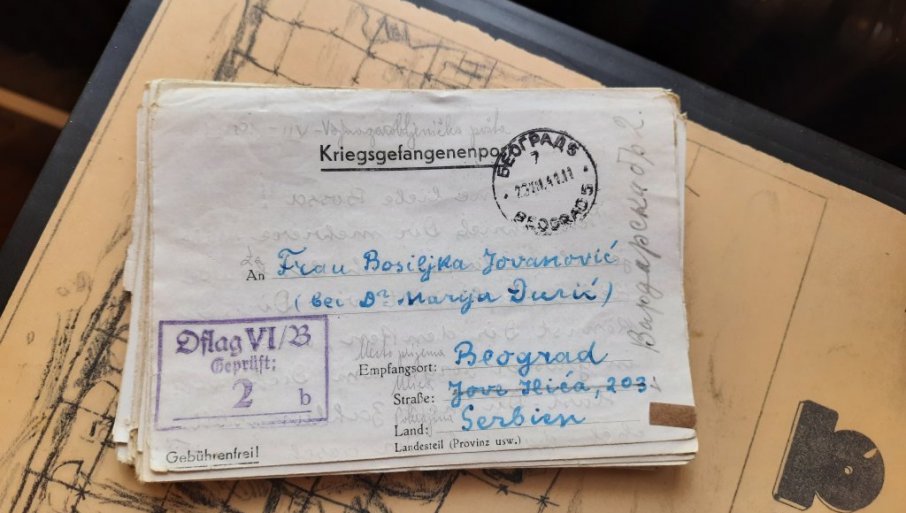 Kriegsgefangenenpost
БЕОГРАД 5
7
BEOGRAD 5
An Frau Bosiljka Jovanović
(bei Dr Marija Đurić)
Oflag VI/B
Geprüft:
2 b
Mesto prijema
Empfangsort: Beograd
Ulica
Straße: Jove Ilića, 203
Land: Serbien
Landesteil (Provinz usw.)
Gebührenfrei!
Вардарска бр 2.